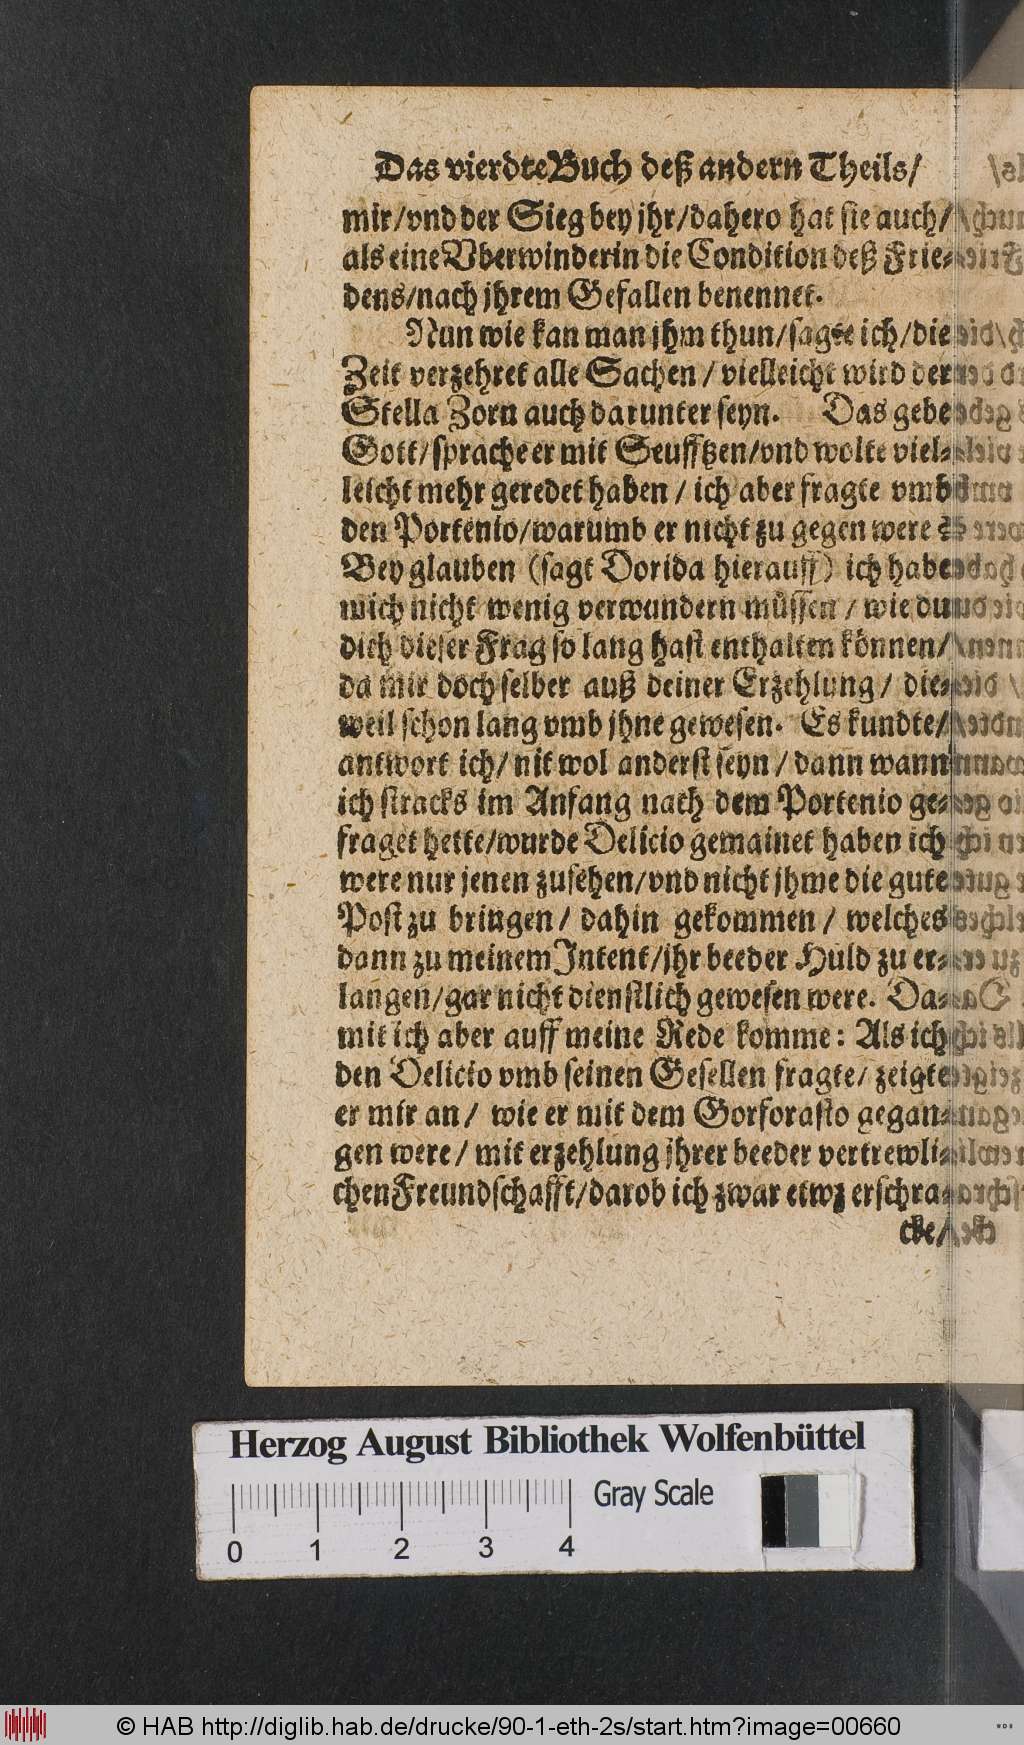 Das vierdte Buch deß andern Theils/
mir/vnd der Sieg bey jhr/dahero hat sie auch/
als eine Vberwinderin die Condition deß Frie-
dens/nach jhrem Gefallen benennet.
Nun wie kan man jhm thun/sagte ich/die
Zeit verzehret alle Sachen/vielleicht wird der
Stella Zorn auch darunter seyn. Das gebe
Gott/sprache er mit Seufftzen/vnd wolte viel-
leicht mehr geredet haben/ich aber fragte vmb
den Portenio/warumb er nicht zu gegen were?
Bey glauben (sagt Dorida hierauff) ich habe
mich nicht wenig verwundern müssen/wie du
dich dieser Frag so lang hast enthalten können/
da mir doch selber auß deiner Erzehlung/die-
weil schon lang vmb jhne gewesen. Es kundte/
antwort ich/nit wol anderst seyn/dann wann
ich stracks im Anfang nach dem Portenio ge-
fraget hette/wurde Delicio gemainet haben ich
were nur jenen zusehen/vnd nicht jhme die gute
Post zu bringen/dahin gekommen/welches
dann zu meinem Intent/jhr beeder Huld zu er-
langen/gar nicht dienstlich gewesen were. Da-
mit ich aber auff meine Rede komme: Als ich
den Delicio vmb seinen Gesellen fragte/zeigte
er mir an/wie er mit dem Gorforasto gegan-
gen were/mit erzehlung jhrer beeder vertrewli-
chen Freundschafft/darob ich zwar etwz erschra-
cke/
Herzog August Bibliothek Wolfenbüttel
Gray Scale
0 1 2 3 4
© HAB http://diglib.hab.de/drucke/90-1-eth-2s/start.htm?image=00660